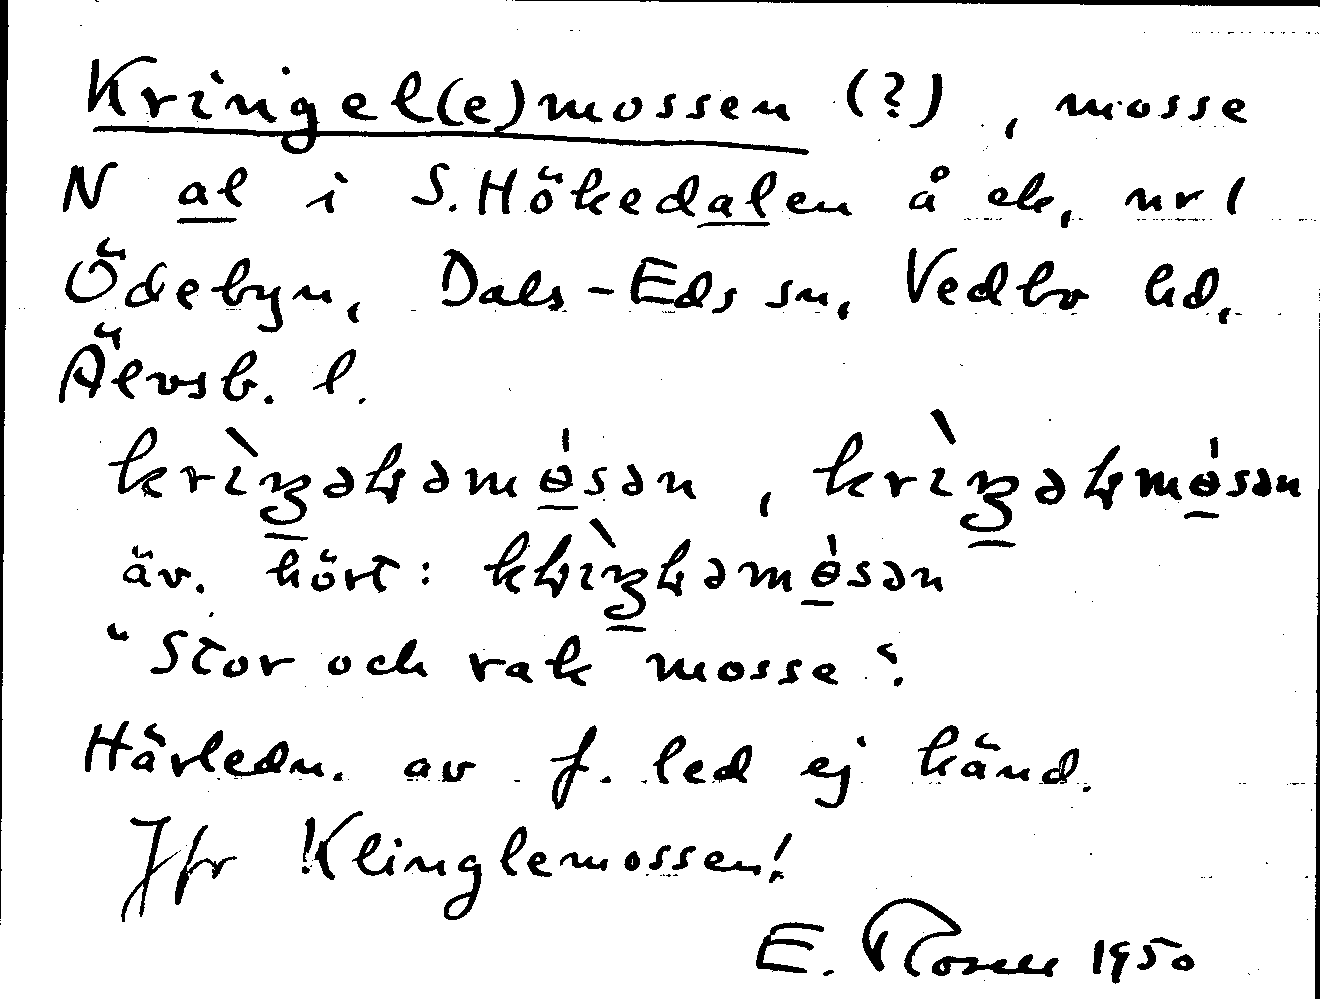 Kringel(e)mossen (?), mosse
N al i S. Hökedalen å ek. nr 1
Ödebyn, Dals-Eds sn, Vedbo hd,
Älvsb. l.
äv. hört:
"Stor och rak mosse".
Härledn. av f. led ej känd.
Jfr Klinglemossen!
E. Rosell 1950